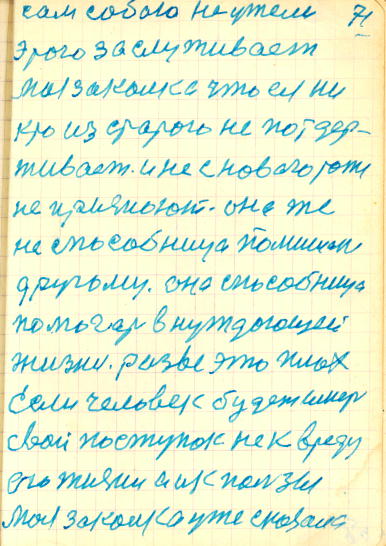 сам собою неужели 71
этого заслуживает
моя закалка что ея ни
кто из старого не потдер-
живает. и не с нового тоже
не приямают. она же
не способница
другому. она способница
помогат в нуждающей
жизни. разве это плох
Если человек будет имет
свой поступок не к вреду
его жизни а кползы
моя закалка уже сковала